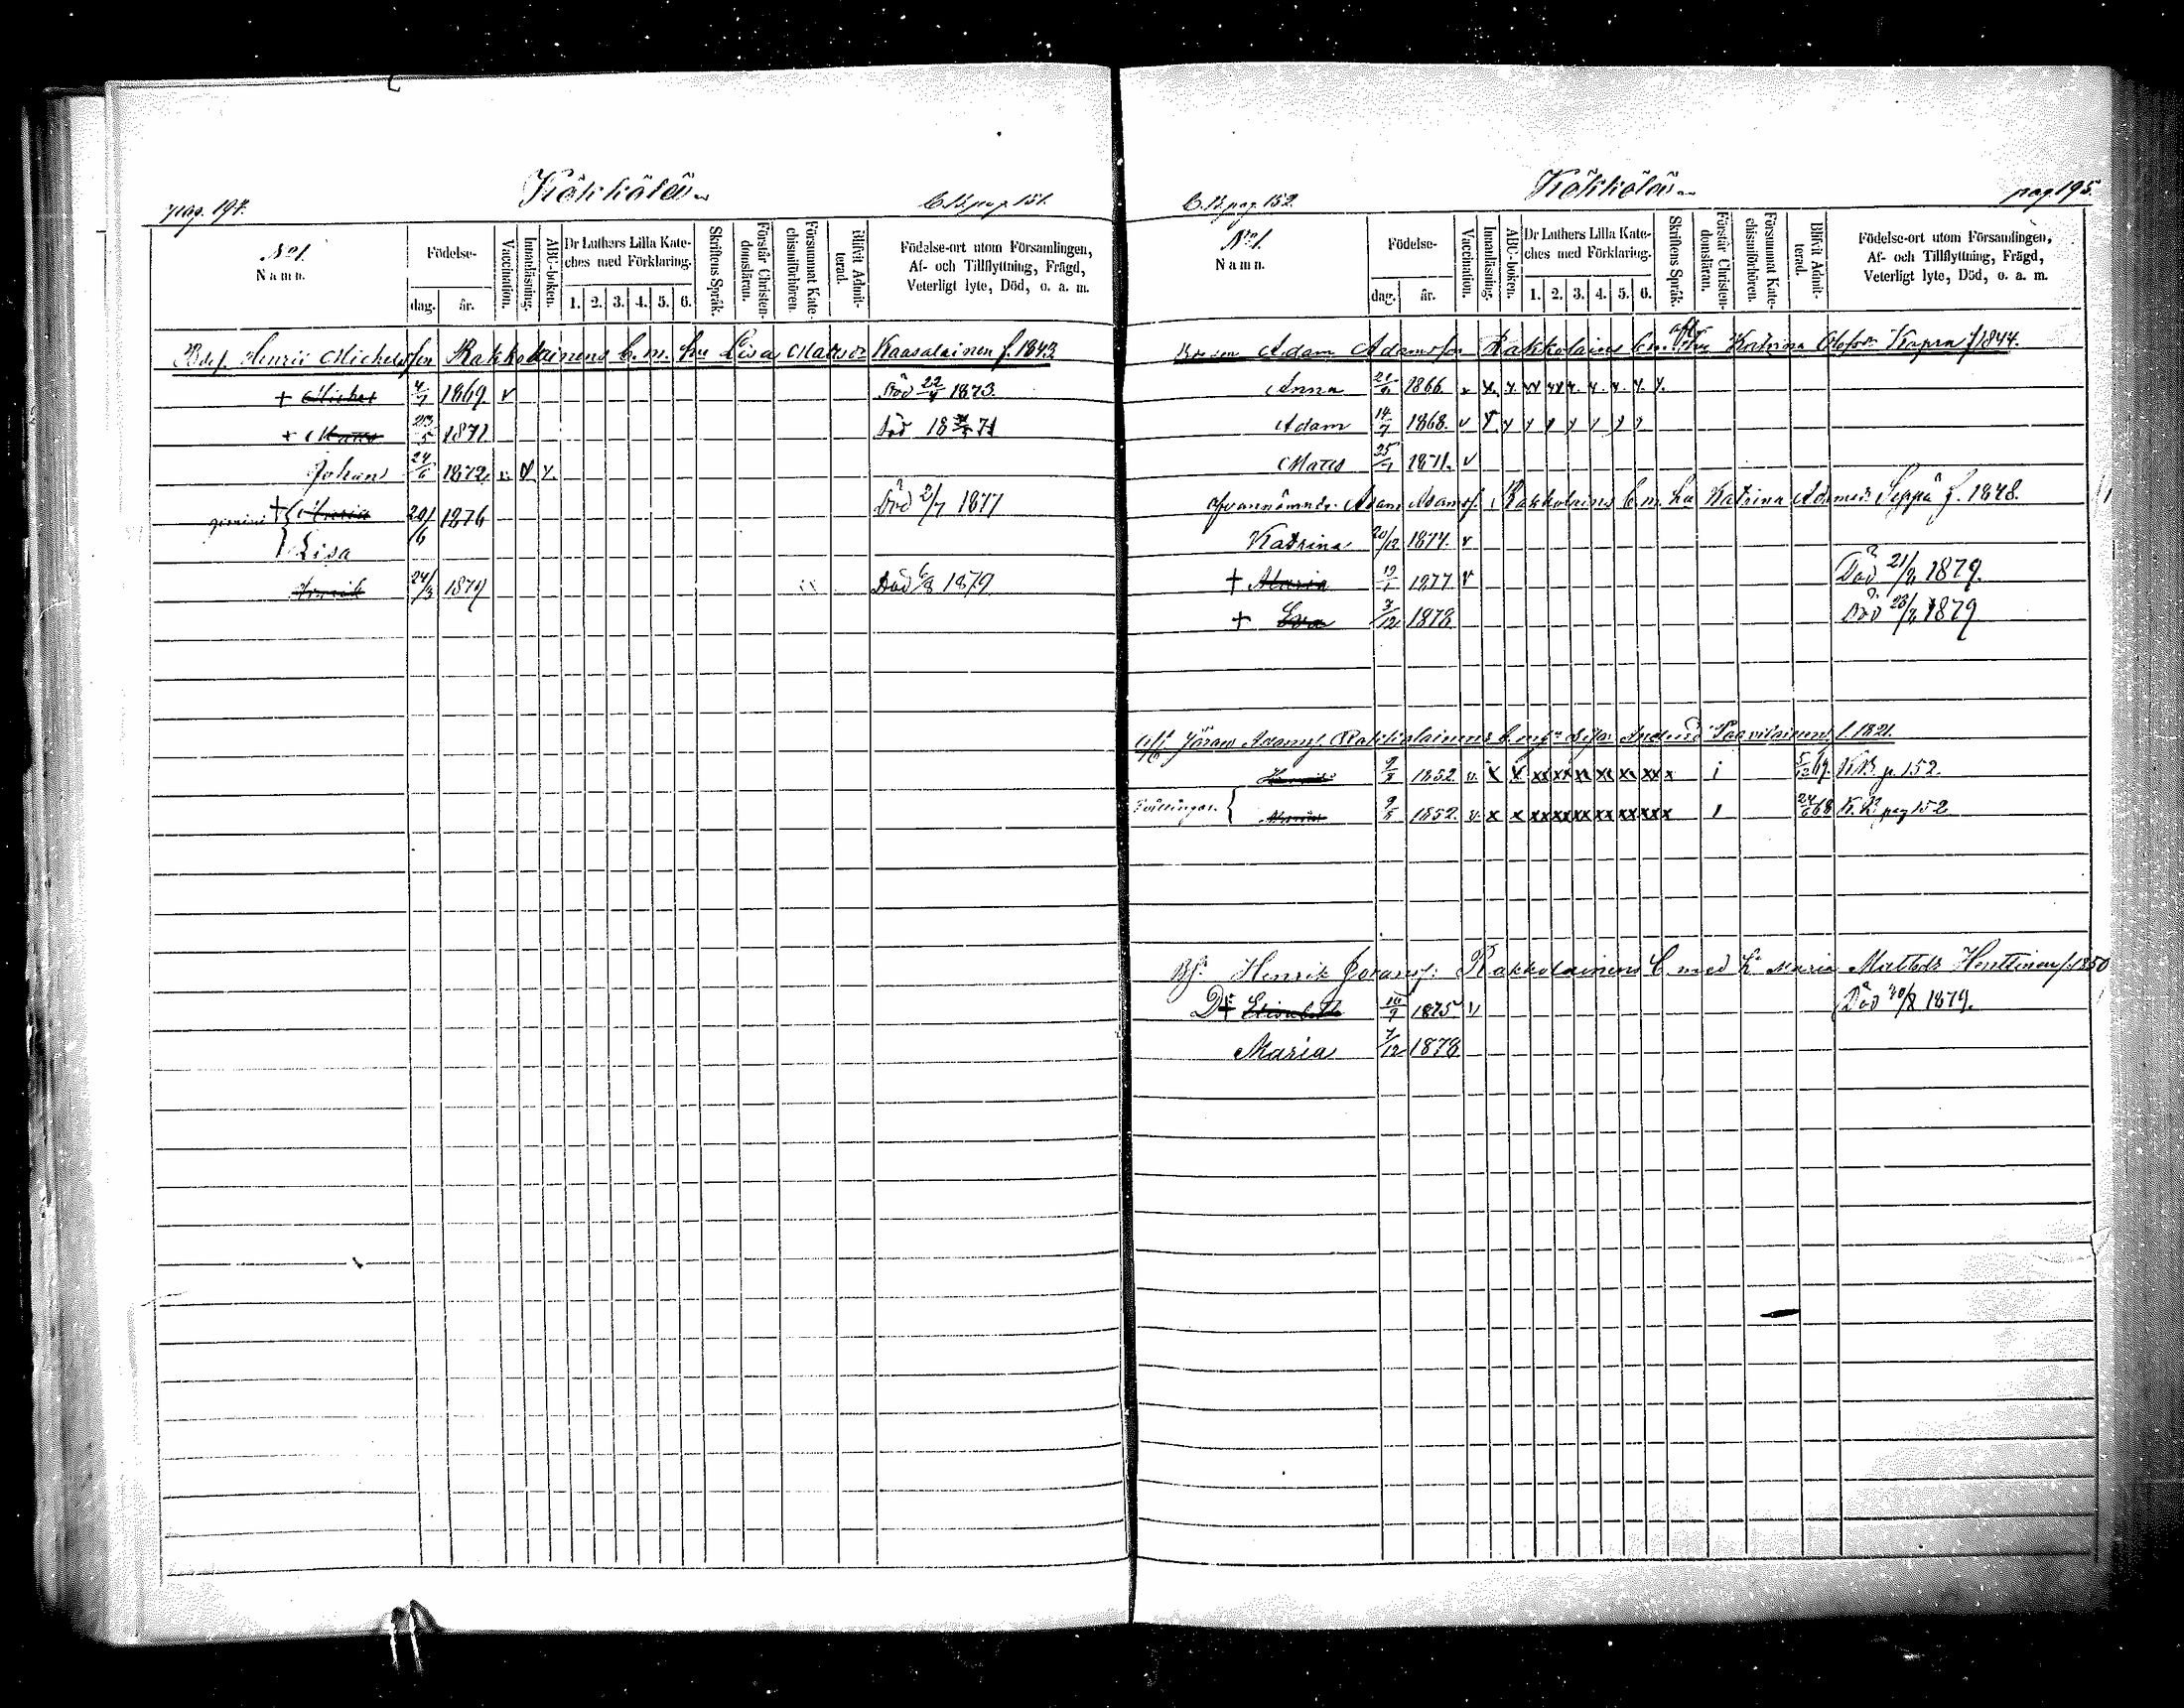 pag. 194.
Kökkölä
C.B. pag. 151.
No 1.
Namn.
Födelse-
dag.
år.
Vaccination.
Innanläsning.
ABC-boken.
Dr Luthers Lilla Kate-
ches med Förklaring.
1. 2. 3. 4. 5. 6.
Skriftens Språk.
Förstår Christen-
domsläran.
Försummat Kate-
chismiförhören.
Blifvit Admit-
terad.
Födelse-ort utom Församlingen,
Af- och Tillflyttning, Frägd,
Veterligt lyte, Död, o. a. m.
Henric Michelsson Rakkolainens b. m. hu Lisa Matsdr Kaasalainen f. 1843
+ Michel 1869 v Död 22/4 1873.
+ Matts 23/5 1871 död 1871
Johan 24/6 1872 v
gemini + Maria 20/6 1876 Död 2/7 1877
Lisa
Henrik 24/3 1879 Död 6/8 1879
C.B. pag. 152.
Kökkölä
pag 195.
No 1.
Namn.
Födelse-
dag.
år.
Vaccination.
Innanläsning.
ABC-boken.
Dr Luthers Lilla Kate-
ches med Förklaring.
1. 2. 3. 4. 5. 6.
Skriftens Språk.
Förstår Christen-
domsläran.
Försummat Kate-
chismiförhören.
Blifvit Admit-
terad.
Födelse-ort utom Församlingen,
Af- och Tillflyttning, Frägd,
Veterligt lyte, Död, o. a. m.
Adam Adamsson Rakkolainens b. m. afl. hu Katrina Olofsdr Kapra f 1844.
Anna 1866
Adam 14/7 1868. v
Matts 25/1 1871. v
Ofvannämnde Adam Adamss. Rakkolainens b m. hu Katrina Adamsdr Seppä f. 1848.
Katrina 20/12 1874. v
+ Maria 1877 v Död 21/8 1879.
+ Eva 3/12 1878 Död 23/8 1879
Jöran Adamss. Rakkolainens b. Paavilainen f. 1821.
Henrik 9/8 1852 v. x 69. K.B p. 152.
Tvillingar. 9/8 1852. v. x 24/6 68 K.B. pag 152
Bf. Henrik Göranss: Rakkolainens b med h. Maria Mattsdr Henttinen f. 1850
D. + Elisabeth 1875 v Död 1879.
Maria 7/12 1878